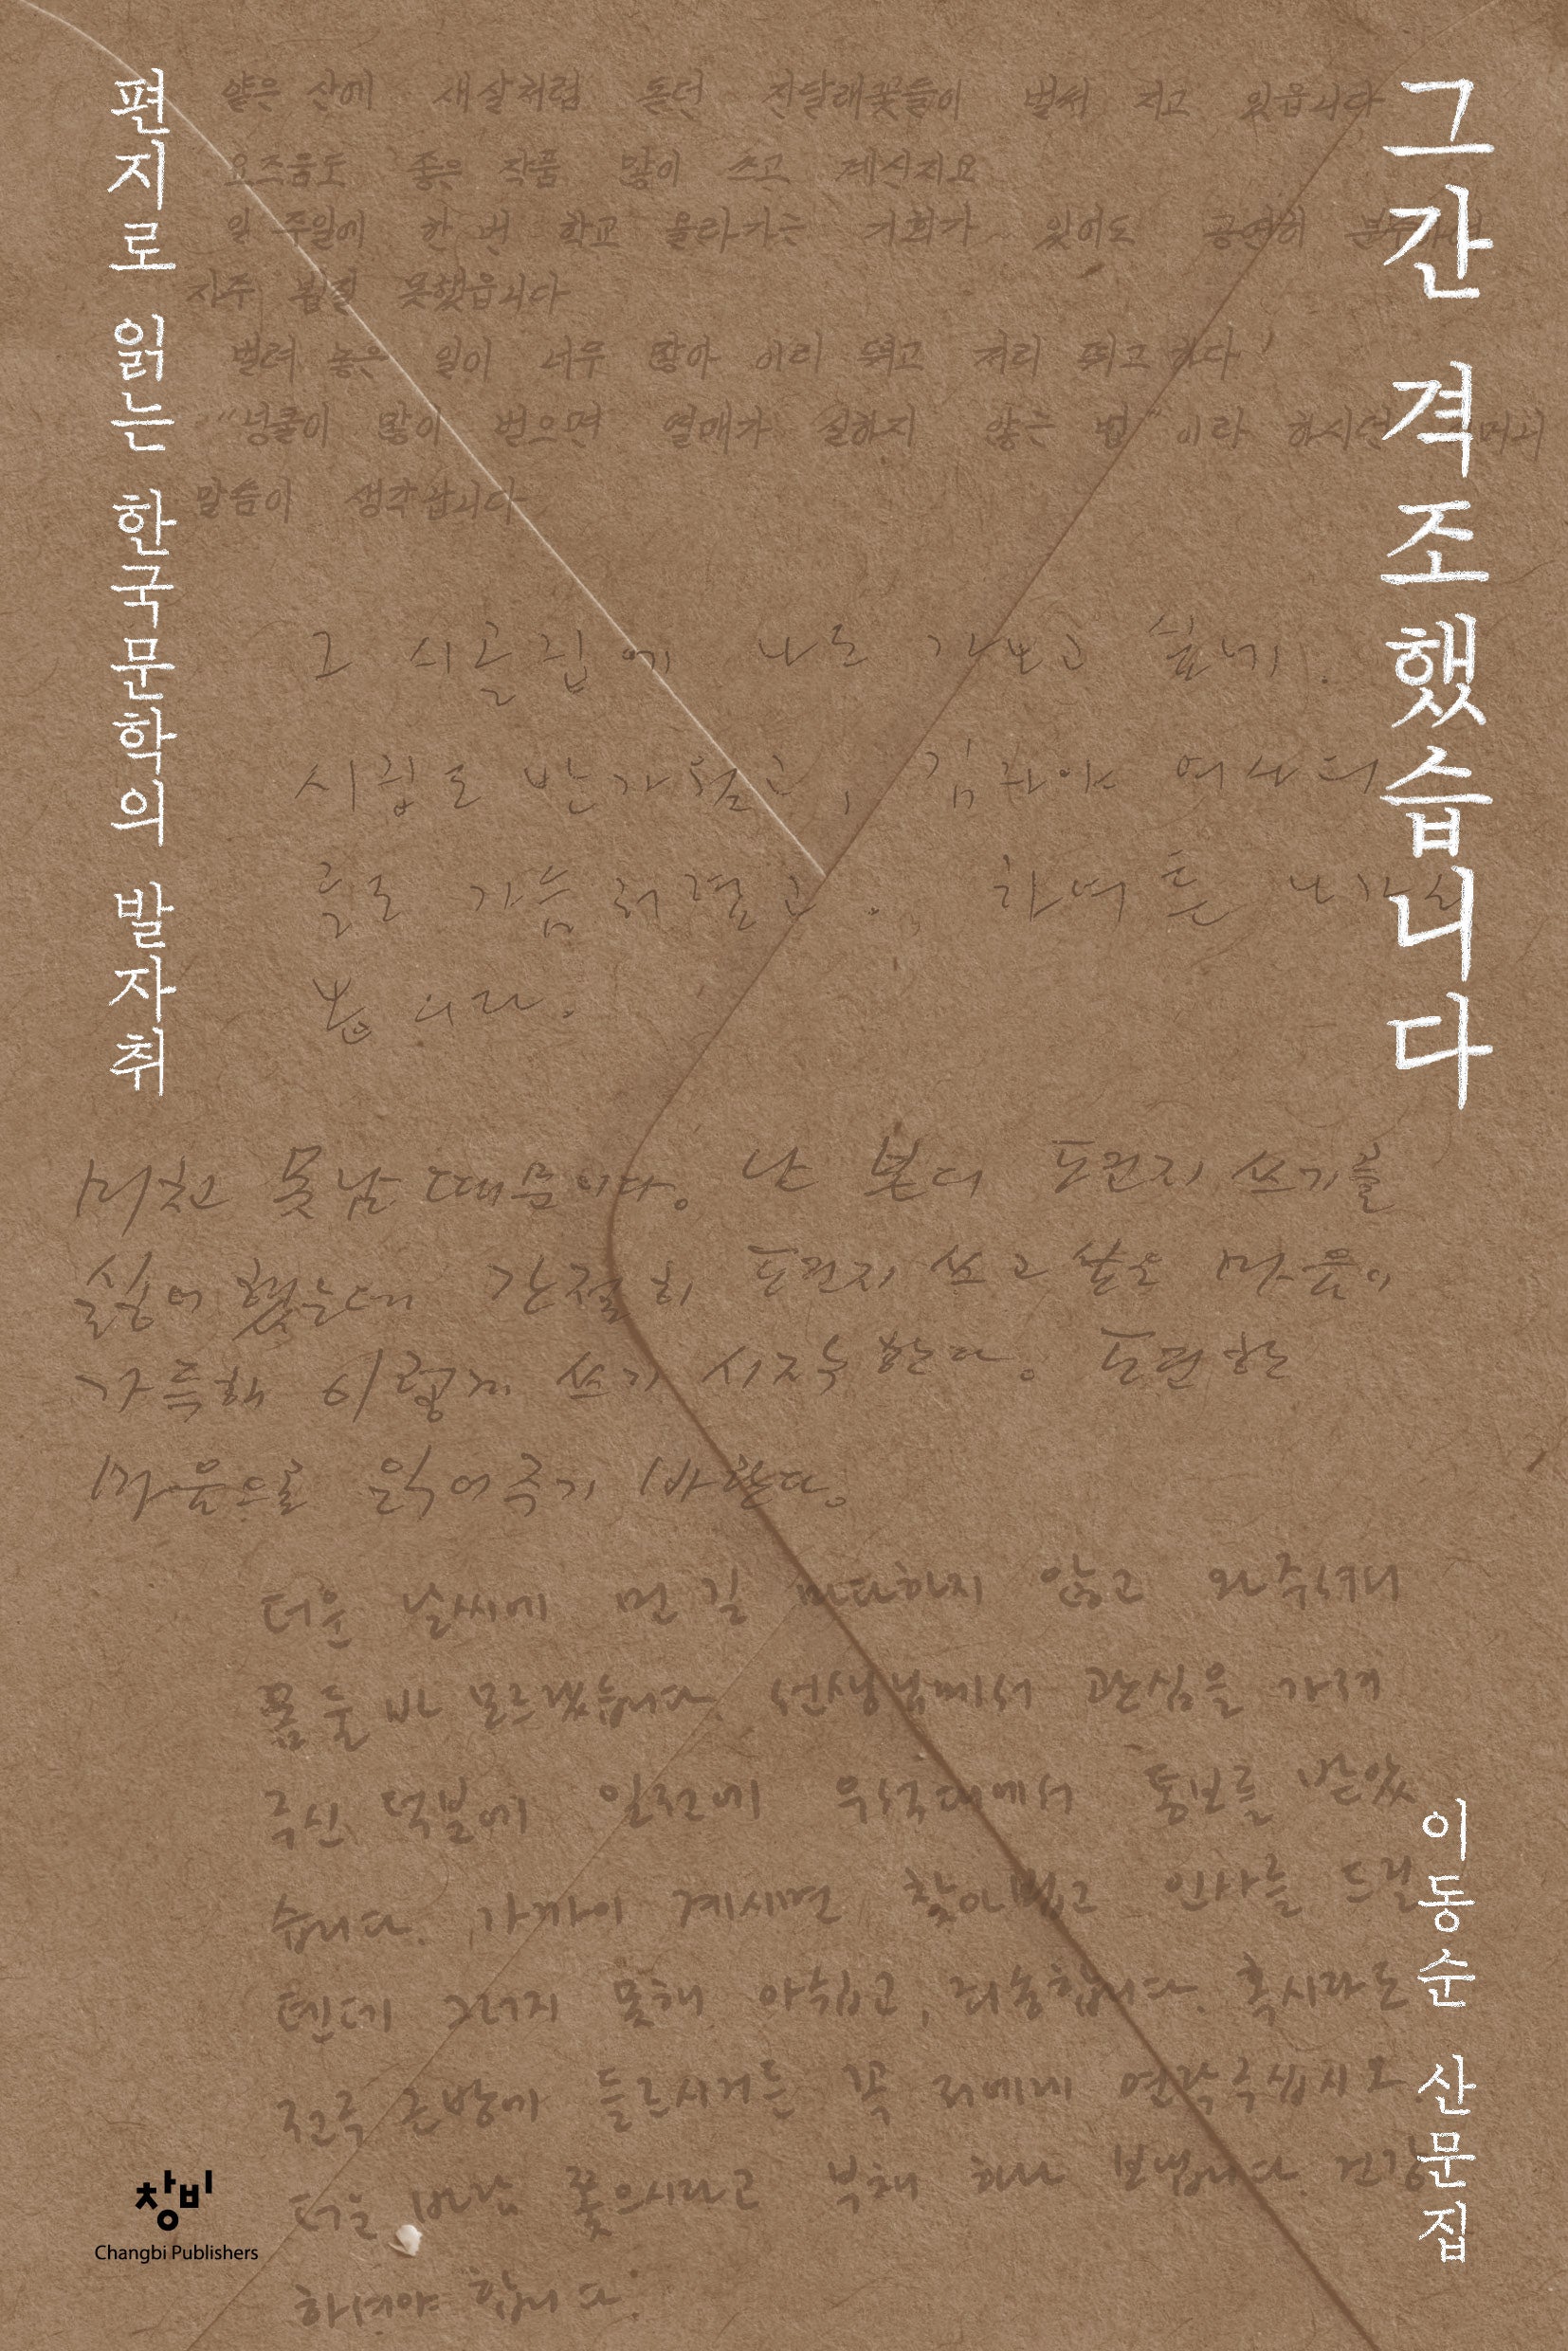 그간 격조했습니다
편지로 읽는 한국문학의 발자취
얕은 산에 새살처럼 돋던 진달래꽃들이 벌써 지고 있읍니다
요즈음도 좋은 작품 많이 쓰고 계신지요
일주일에 한 번 학교 올라가는 기회가 있어도 공연히
자주 뵙질 못했읍니다
벌려 놓은 일이 너무 많아 이리 뛰고 저리 뛰고 하다
"넝쿨이 많이 벋으며 열매가 실하지 않는 법"이라 하시던
말씀이 생각납니다
그 시골집에 나도 가보고 싶네.
시집도 반가웠고, 김자야 여사의
글도 가슴 저렸고. 하여튼
봅니다.
미치고 못남 때문이다. 난 본디 편지 쓰기를
싫어했는데 간절히 편지 쓰고 싶은 마음이
가득해 이렇게 쓰기 시작한다. 편한
마음으로 읽어주기 바란다.
더운 날씨에 먼 길 마다하지 않고 와주셔서
몸 둘 바 모르겠습니다. 선생님께서 관심을 가져
주신 덕분에 일전에 우석대에서 통보를 받았
습니다. 가까이 계시면 찾아뵙고 인사를 드릴
텐데 그러지 못해 아쉽고, 죄송합니다. 혹시라도
전주 근방에 들르시거든 꼭 저에게 연락주십시오.
더운 바람 쫓으시라고 부채 하나 보냅니다. 건강
하셔야 합니다.
이동순 산문집
창비
Changbi Publishers